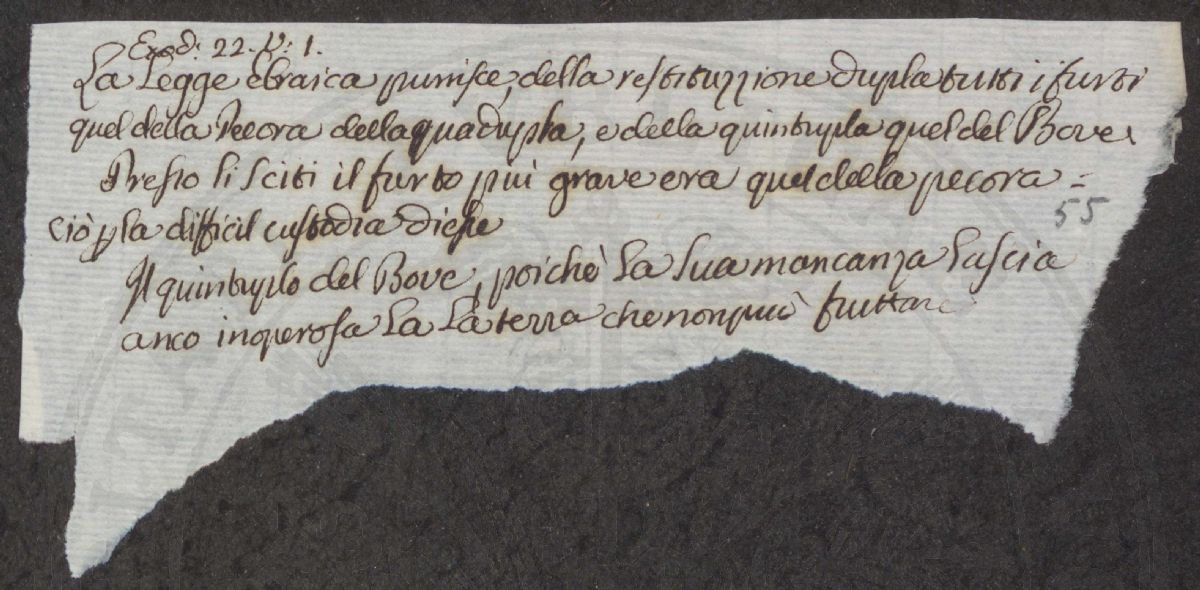 Exod: 22. V: 1.
La Legge ebraica punisce, della restituzzione dupla tutti i furti
quel della Pecora della quadupla, e della quintupla quel del Bove.
Presso li Sciti il furto più grave era quel della pecora =
ciò p la difficil custodia di esse
55
Il quintuplo del Bove, poichè la sua mancanza lascia
anco inoperosa La La terra che non può fruttare